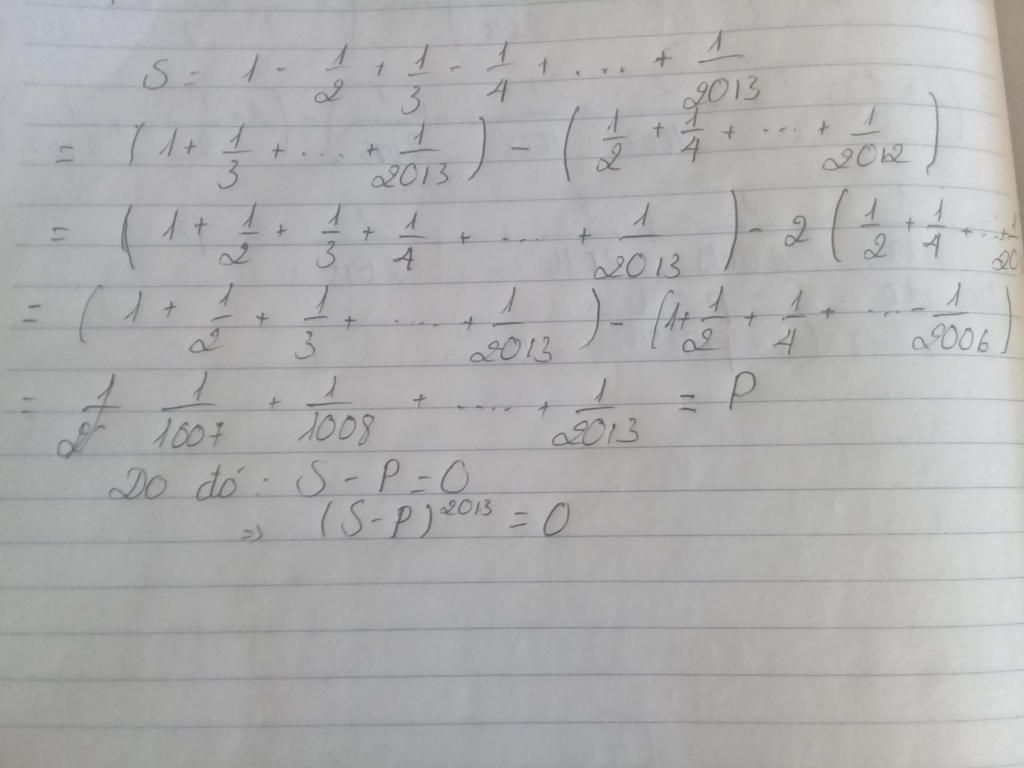 S = 1 - 1/2 + 1/3 - 1/4 + .... + 1/2013
= (1 + 1/3 + ... + 1/2013) - (1/2 + 1/4 + ... + 1/2012)
= (1 + 1/2 + 1/3 + 1/4 + .... + 1/2013) - 2 (1/2 + 1/4 + ... + 1/20
= (1 + 1/2 + 1/3 + .... + 1/2013) - (1 + 1/2 + 1/4 + ... - 1/2006)
= 1/1007 + 1/1008 + .... + 1/2013 = P
Do đó: S - P = 0
=> (S - P)^2013 = 0